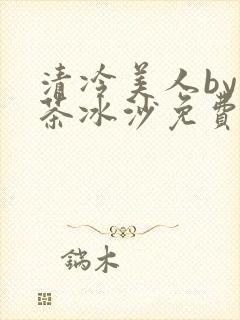 清冷美人by
茶冰沙免费
鎬木